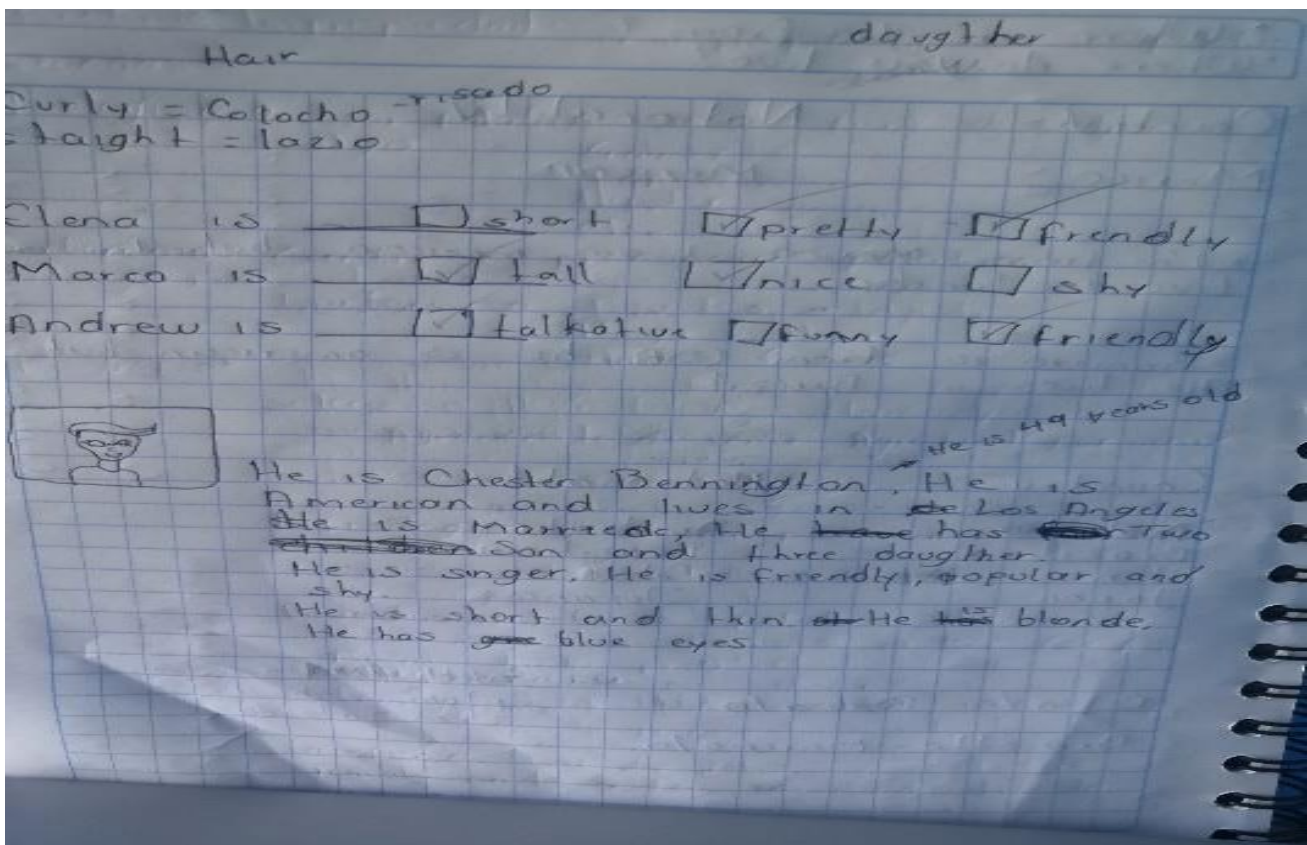 daugther
Hair
Curly = Colocho - risado
staight = lazio
Elena is ☐ short ☑ pretty ☑ frendly
Marco is ☑ tall ☑ nice ☐ shy
Andrew is ☑ talkative ☐ funny ☑ friendly
He is 49 years old
He is Chester Bennington. He is
American and lives in Los Angeles
He is Married, He has Two
Son and three daugther.
He is singer. He is friendly, popular and
shy.
He is short and thin He is blonde.
He has blue eyes